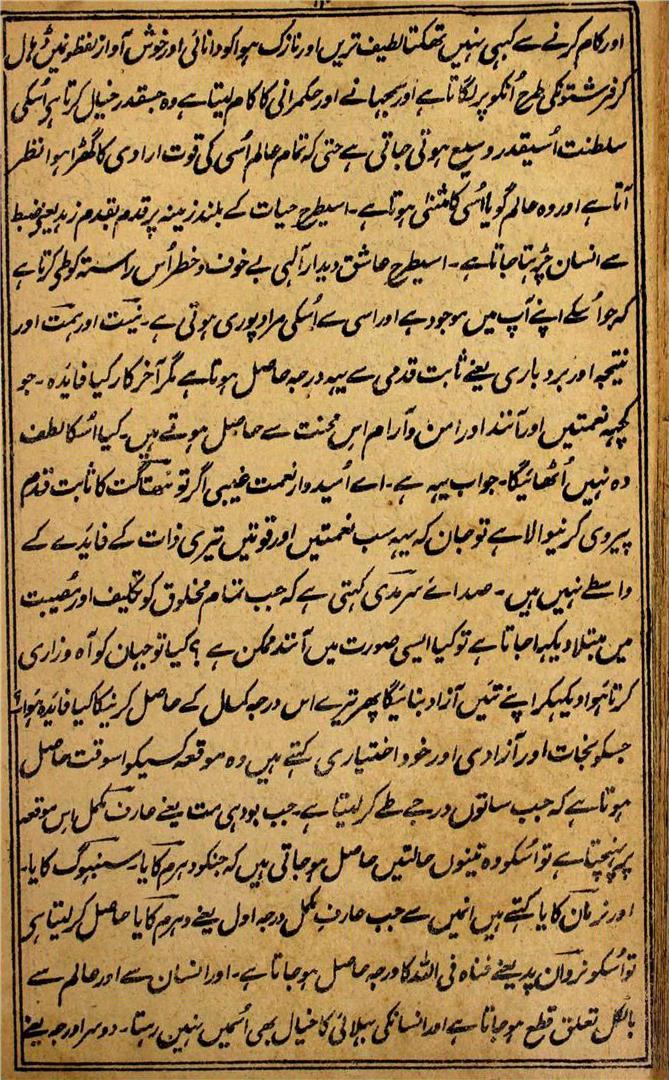 اور کام کرنے سے کبہی نہیں تھکتا لطیف ترین اور نازک ہوا کو دانائی اور خوش آواز لفظونمیں ڈہال
کر فرشتونکی طرح اُنکو پر لگاتا ہے اور سمجہانے اور حکمرانی کا کام لیتا ہے وہ جسقدر خیال کرتا ہر اُسکی
سلطنت اُسیقدر وسیع ہوتی جاتی ہے حتی کہ تمام عالم اُسی کی قوت ارادی کا گھڑا ہوا نظر
آتا ہے اور وہ عالم گویا اُسی کا مثنی ہوتا ہے۔ اسیطرح حیات کے بلند زینہ پر قدم بقدم زہد یعنے ضبط
سے انسان چڑہتا جاتا ہے۔ اسیطرح عاشق دیدار آلہی بے خوف و خطر اُس راستہ کو طی کرتا ہے
کہ جو اُسکے اپنے آپ میں موجود ہے اور اسی سے اُسکی مراد پوری ہوتی ہے۔ نیت اور ہمت اور
نتیجہ اور بردباری یعنے ثابت قدمی سے یہہ درجہ حاصل ہوتا ہے مگر آخر کار کیا فایدہ۔ جو
کچہہ نعمتیں اور آنند اور امن و آرام اس محنت سے حاصل ہوتے ہیں۔ کیا اُسکا لطف
وہ نہیں اُٹھائیگا۔ جواب یہہ ہے۔ اے اُمیدوار نعمت غیبی اگر تو تتھاگت کا ثابت قدم
پیروی کرنیوالا ہے تو جان کہ یہہ سب نعمتیں اور قوتیں تیری ذات کے فایدے کے
واسطے نہیں ہیں۔ صدائے سرمدی کہتی ہے کہ جب تمام مخلوق کو تکلیف اور مصیبت
میں مبتلا دیکہا جاتا ہے تو کیا ایسی صورت میں آنند ممکن ہے ؟ کیا تو جہان کو آہ وزاری
کرتا ہوا دیکہکر اپنے تئیں آزاد بنائیگا پھر تیرے اس درجہ کمال کے حاصل کرنیکا کیا فایدہ ہوا؟
جسکو نجات اور آزادی اور خود اختیاری کہتے ہیں وہ موقعہ کسیکو اسوقت حاصل
ہوتا ہے کہ جب ساتوں درجے طے کر لیتا ہے۔ جب بودہی ست یعنے عارف مکمل اس موقعہ
پر پہنچتا ہے تو اُسکو وہ تینوں حالتیں حاصل ہو جاتی ہیں کہ جنکو دہرم کایا۔ سنبہوگ کایا۔
اور نرمان کایا کہتے ہیں انمیں سے جب عارف مکمل درجہ اول یعنے دہرم کایا حاصل کر لیتا ہی
تو اُسکو نروان پد یعنے فناہ فی اللہ کا درجہ حاصل ہو جاتا ہے۔ اور انسان سے اور عالم سے
بالکل تعلق قطع ہو جاتا ہے اور انسانکی بہلائی کا خیال بھی اُسمیں نہیں رہتا۔ دوسرا درجہ یعنے